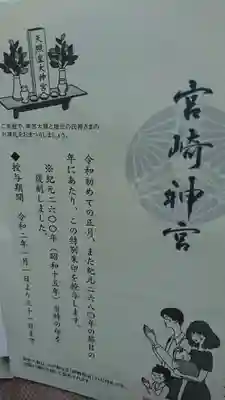 宮崎神宮
天照皇大神宮
ご家庭で、
令和初めての正月、また紀元二六八〇年の節目の
年にあたり、この特別朱印を授与します。
※紀元二六〇〇年(昭和十五年)当時の印を
復刻しました。
◆授与期間 令和二年一月一日より三十一日まで